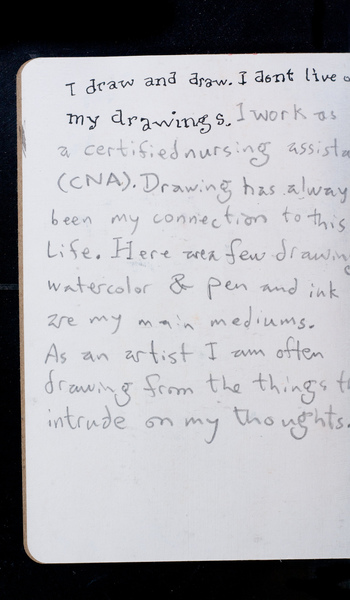 I draw and draw. I dont live
my drawings. I work as
a certified nursing
(CNA). Drawing has
been my connection to this
Life. Here are a few
watercolor & pen and ink
are my main mediums.
As an artist I am often
drawing from the things
intrude on my thoughts.